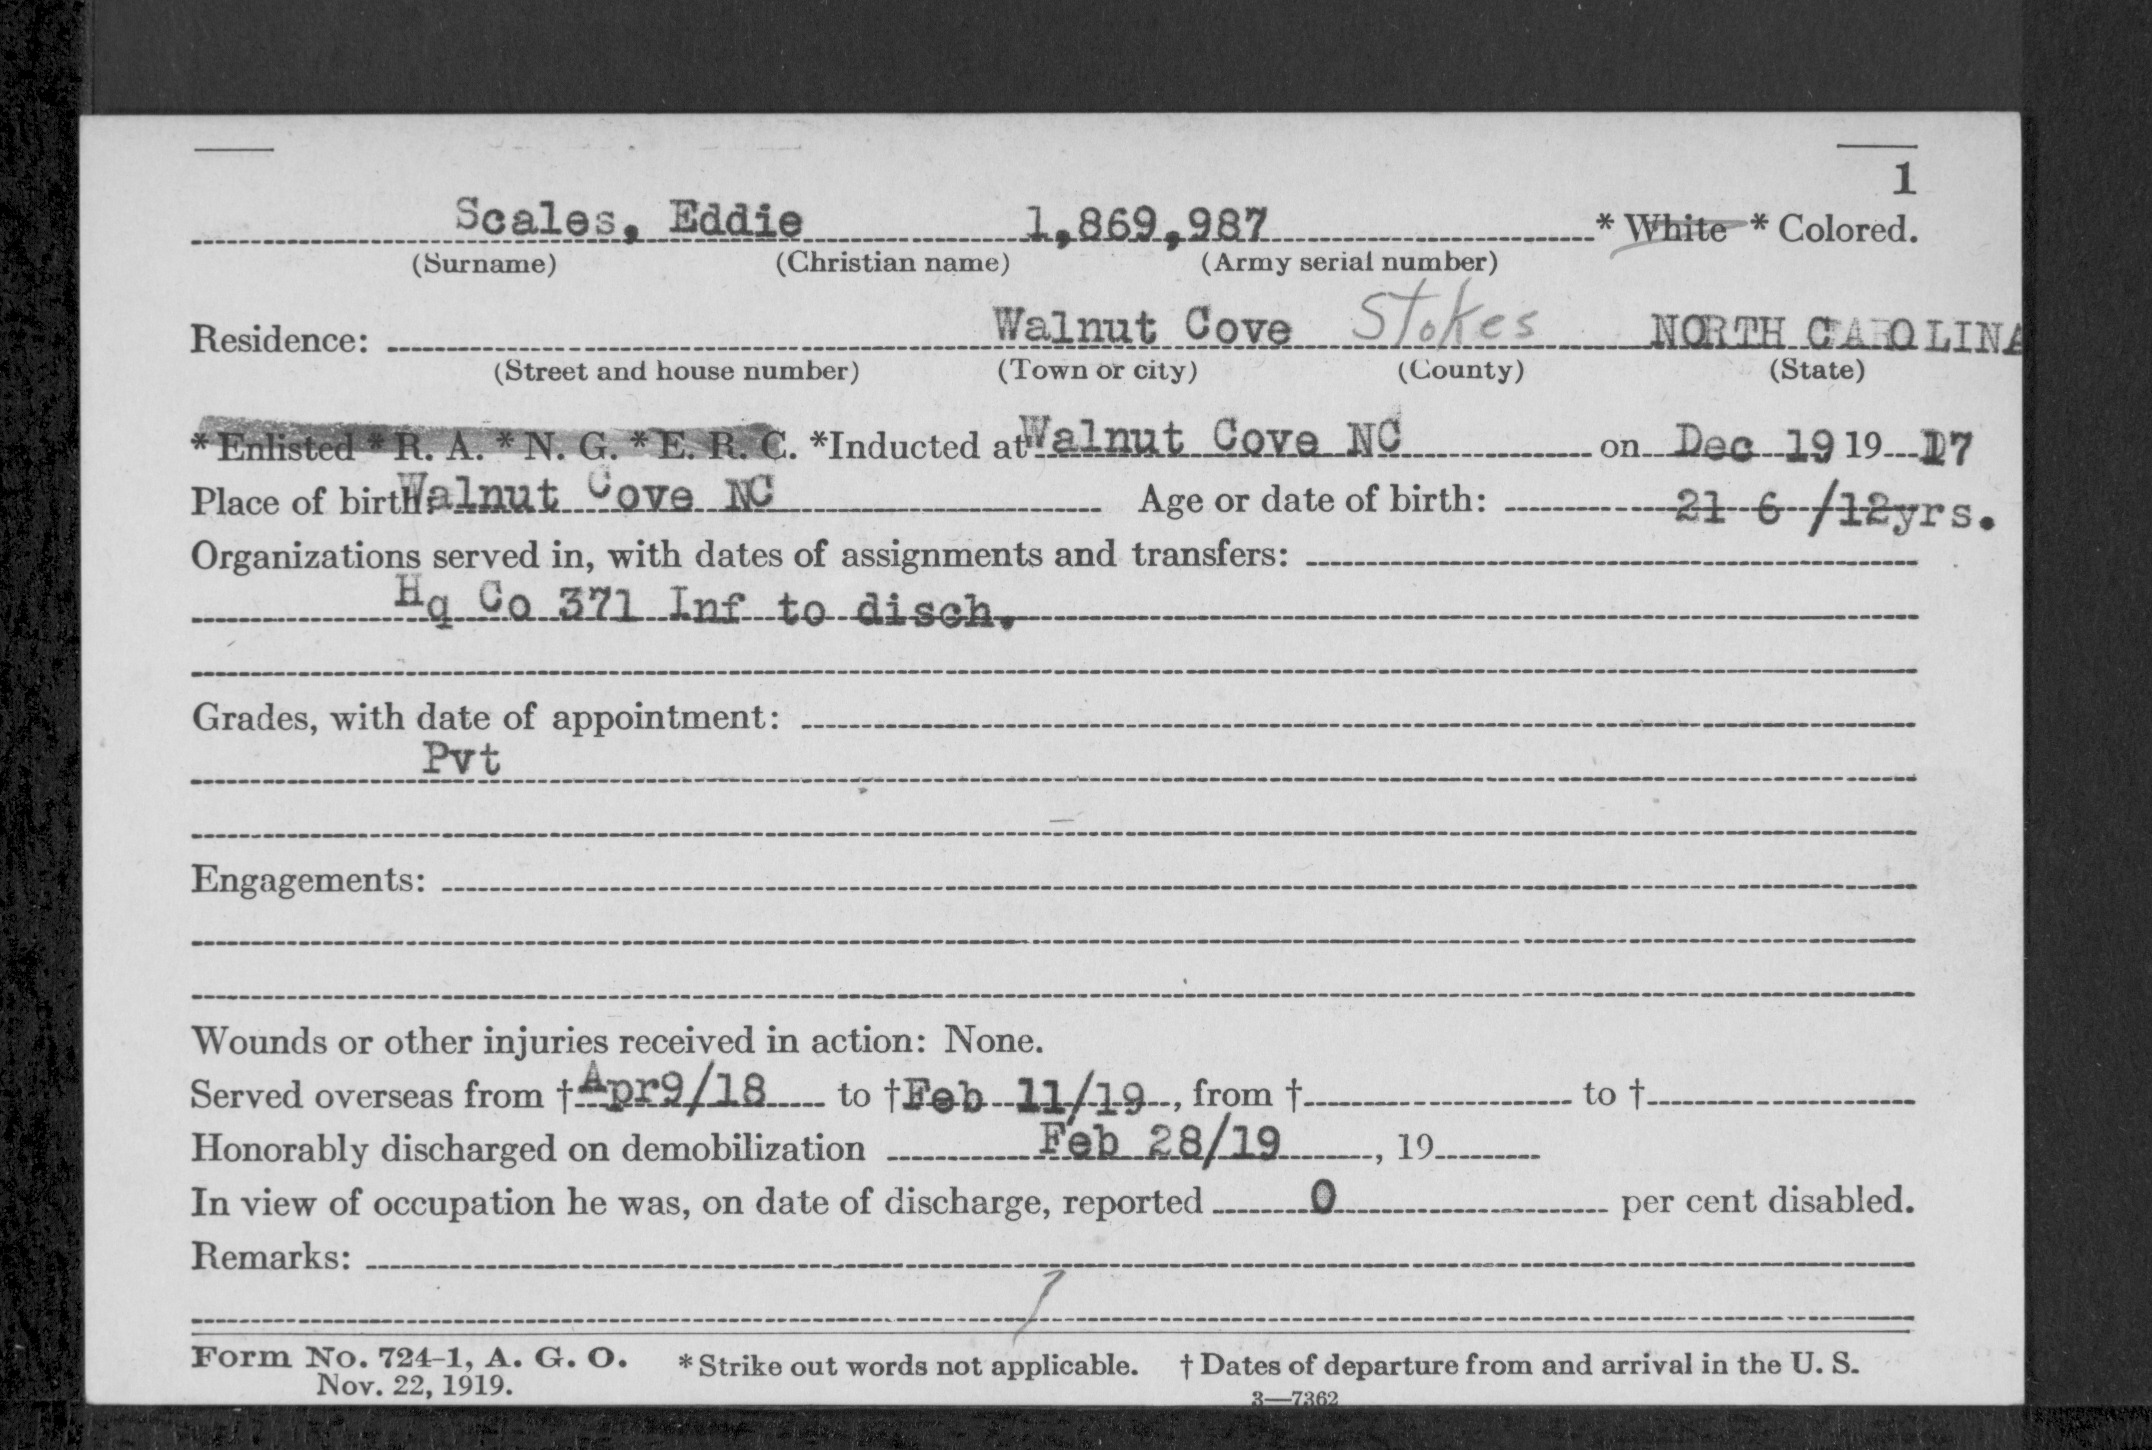 1
Scales, Eddie 1,869,987 * White * Colored.
(Surname) (Christian name) (Army serial number)
Residence: Walnut Cove Stokes NORTH CAROLINA
(Street and house number) (Town or city) (County) (State)
* Enlisted * R. A. * N. G. * E. R. C. *Inducted at Walnut Cove NC on Dec 19 19 17
Place of birth: Walnut Cove NC Age or date of birth: 21 6 /12yrs.
Organizations served in, with dates of assignments and transfers:
Hq Co 371 Inf to disch.
Grades, with date of appointment:
Pvt
Engagements:
Wounds or other injuries received in action: None.
Served overseas from † Apr9/18 to † Feb 11/19, from † to †
Honorably discharged on demobilization Feb 28/19, 19
In view of occupation he was, on date of discharge, reported 0 per cent disabled.
Remarks:
Form No. 724-1, A. G. O. * Strike out words not applicable. † Dates of departure from and arrival in the U. S.
Nov. 22, 1919. 3—7362